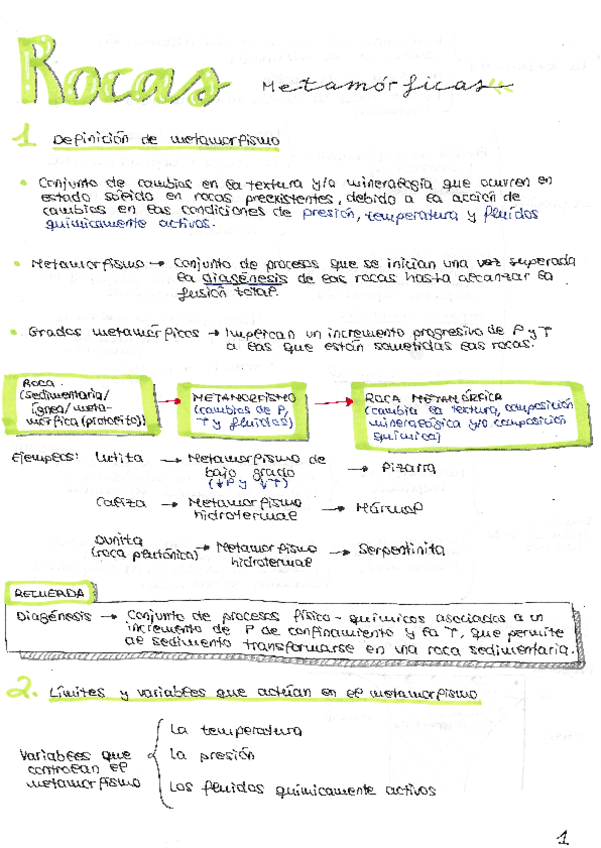 Rocas Metamórficas
1 Definición de metamorfismo
• Conjunto de cambios en la textura y/o mineralogía que ocurren en
estado sólido en rocas preexistentes, debido a la acción de
cambios en las condiciones de presión, temperatura y fluidos
químicamente activos.
• Metamorfismo → Conjunto de procesos que se inician una vez superada
la diagénesis de las rocas hasta alcanzar la
fusión total.
• Grados metamórficos → Implican un incremento progresivo de P y T
a las que están sometidas las rocas.
Roca
(sedimentaria/
ígnea/meta-
mórfica (protolito))
→ METAMORFISMO
(cambios de P,
T y fluidos)
→ ROCA METAMÓRFICA
(cambia la textura, composición
mineralógica y/o composición
química)
Ejemplos: Lutita → Metamorfismo de
bajo grado
(↓P y ↓T)
→ Pizarra
Caliza → Metamorfismo
hidrotermal
→ Mármol
Dunita
(roca plutónica)
→ Metamorfismo
hidrotermal
→ Serpentinita
RECUERDA
Diagénesis → Conjunto de procesos físico-químicos asociados a un
incremento de P de confinamiento y la T, que permite
al sedimento transformarse en una roca sedimentaria.
2. Límites y variables que actúan en el metamorfismo
Variables que
controlan el
metamorfismo
La temperatura
La presión
Los fluidos químicamente activos
1